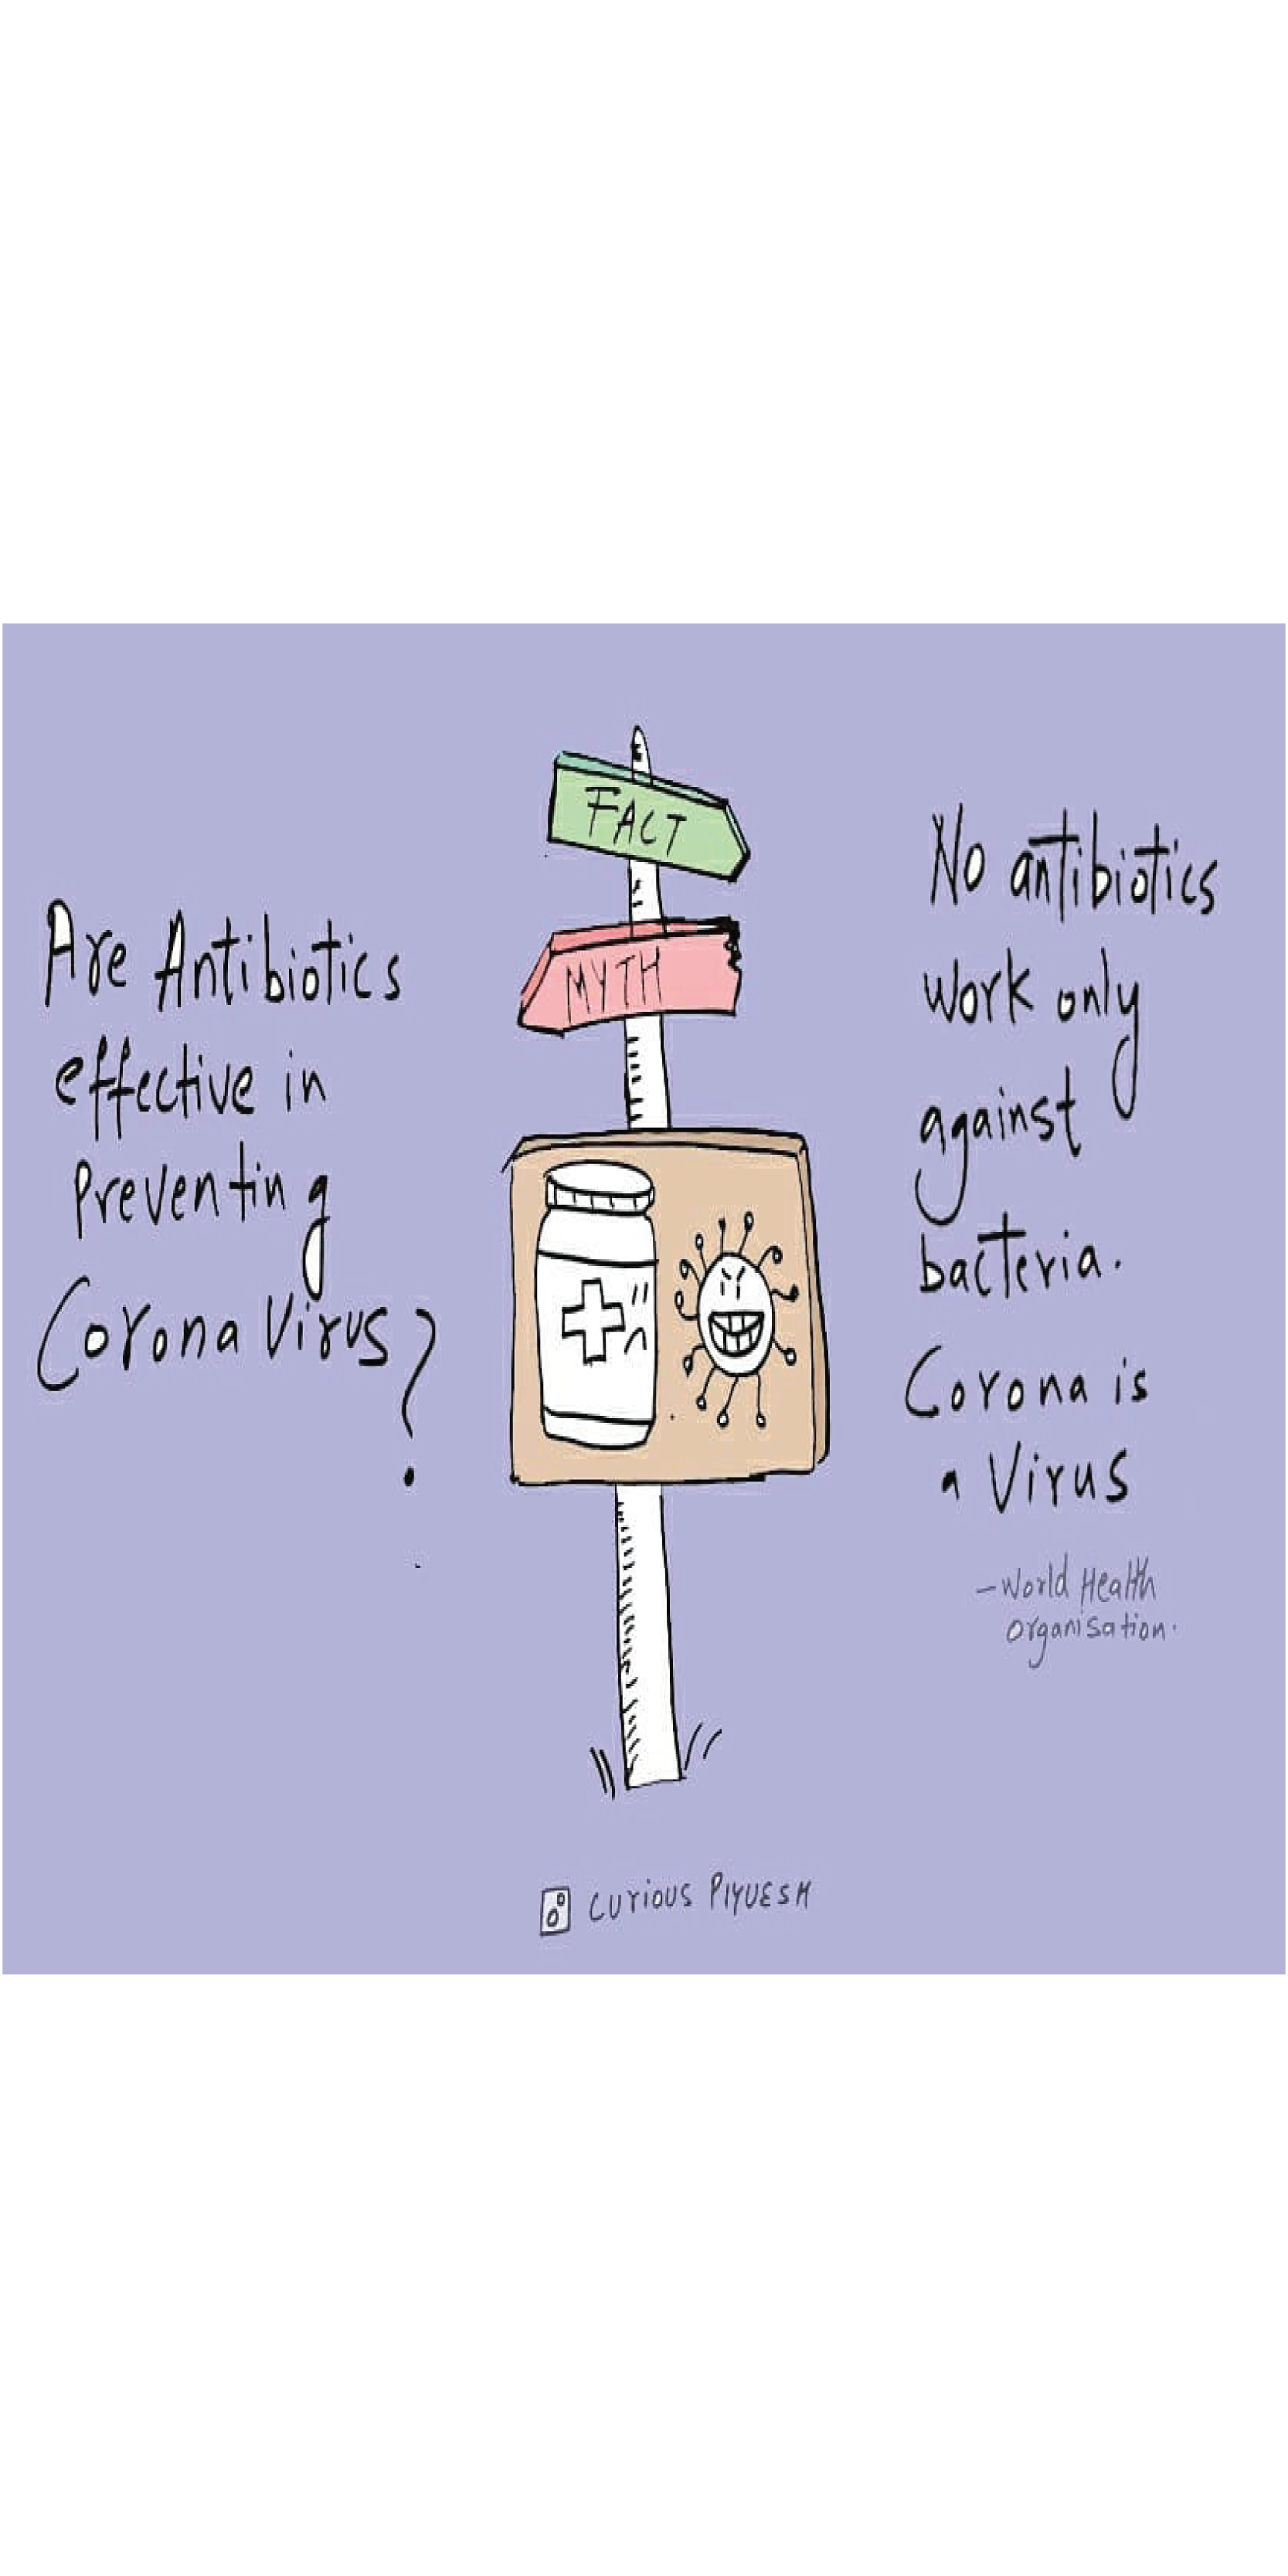 Are Antibiotics
effective in
Preventing
Corona Virus?
FACT
MYTH
No antibiotics
work only
against
bacteria.
Corona is
a Virus
-World Health
Organisation.
CURIOUS PIYUESH